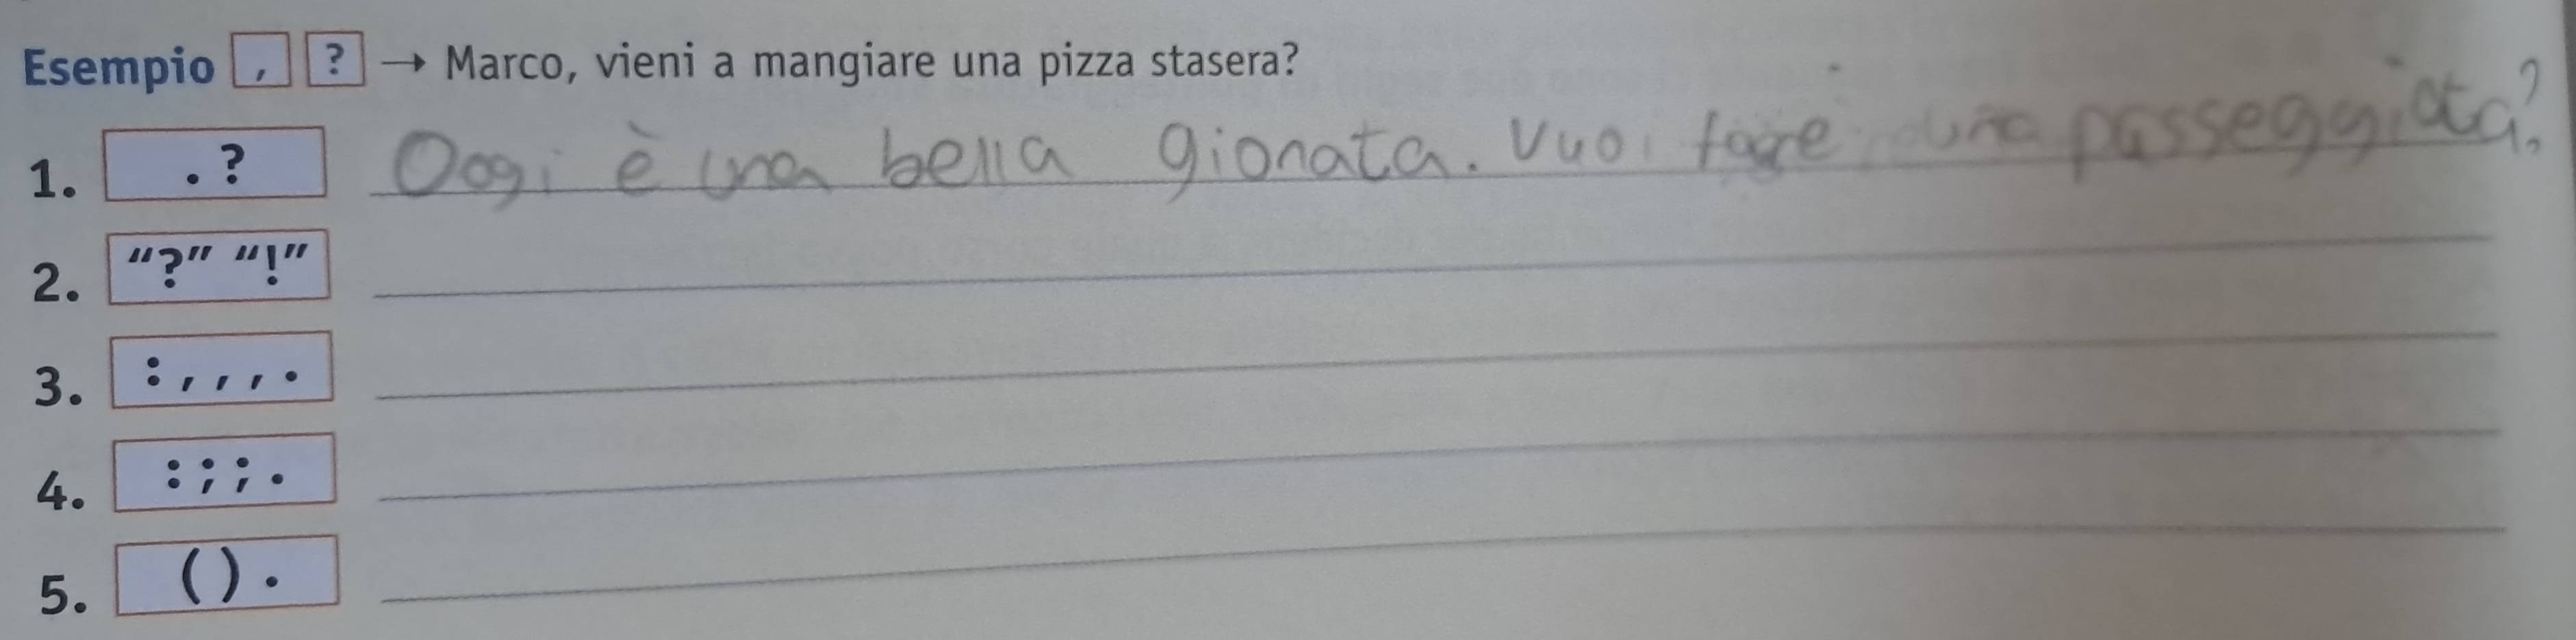 Esempio , ? → Marco, vieni a mangiare una pizza stasera?
1. . ? Oggi è una bella gionata. Vuoi fare una passeggiata?
2. "?" "!"
3. : , , , .
4. : ; ; .
5. ( ) .